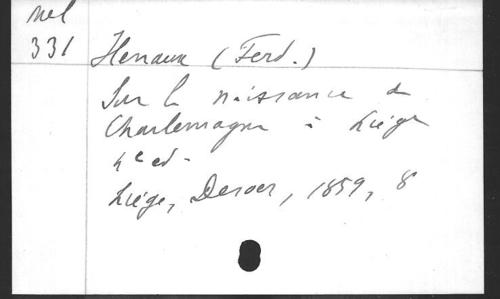 Mel
331
Henaux (Ferd.)
Sur la naissance de
Charlemagne à Liége
4e ed.
Liége, Desoer, 1859, 8